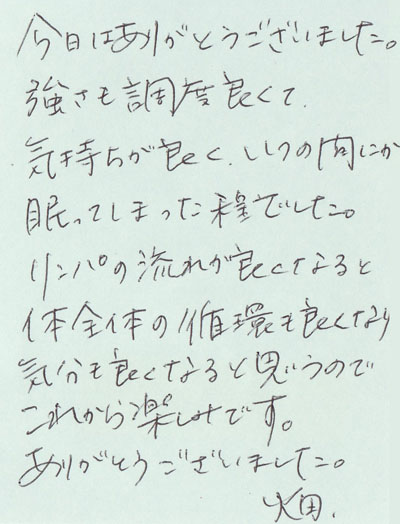 今日はありがとうございました。
強さも調度良くて、
気持ちが良く、いつの間にか
眠ってしまった程でした。
リンパの流れが良くなると
体全体の循環も良くなり
気分も良くなると思うので
これから楽しみです。
ありがとうございました。
畑.